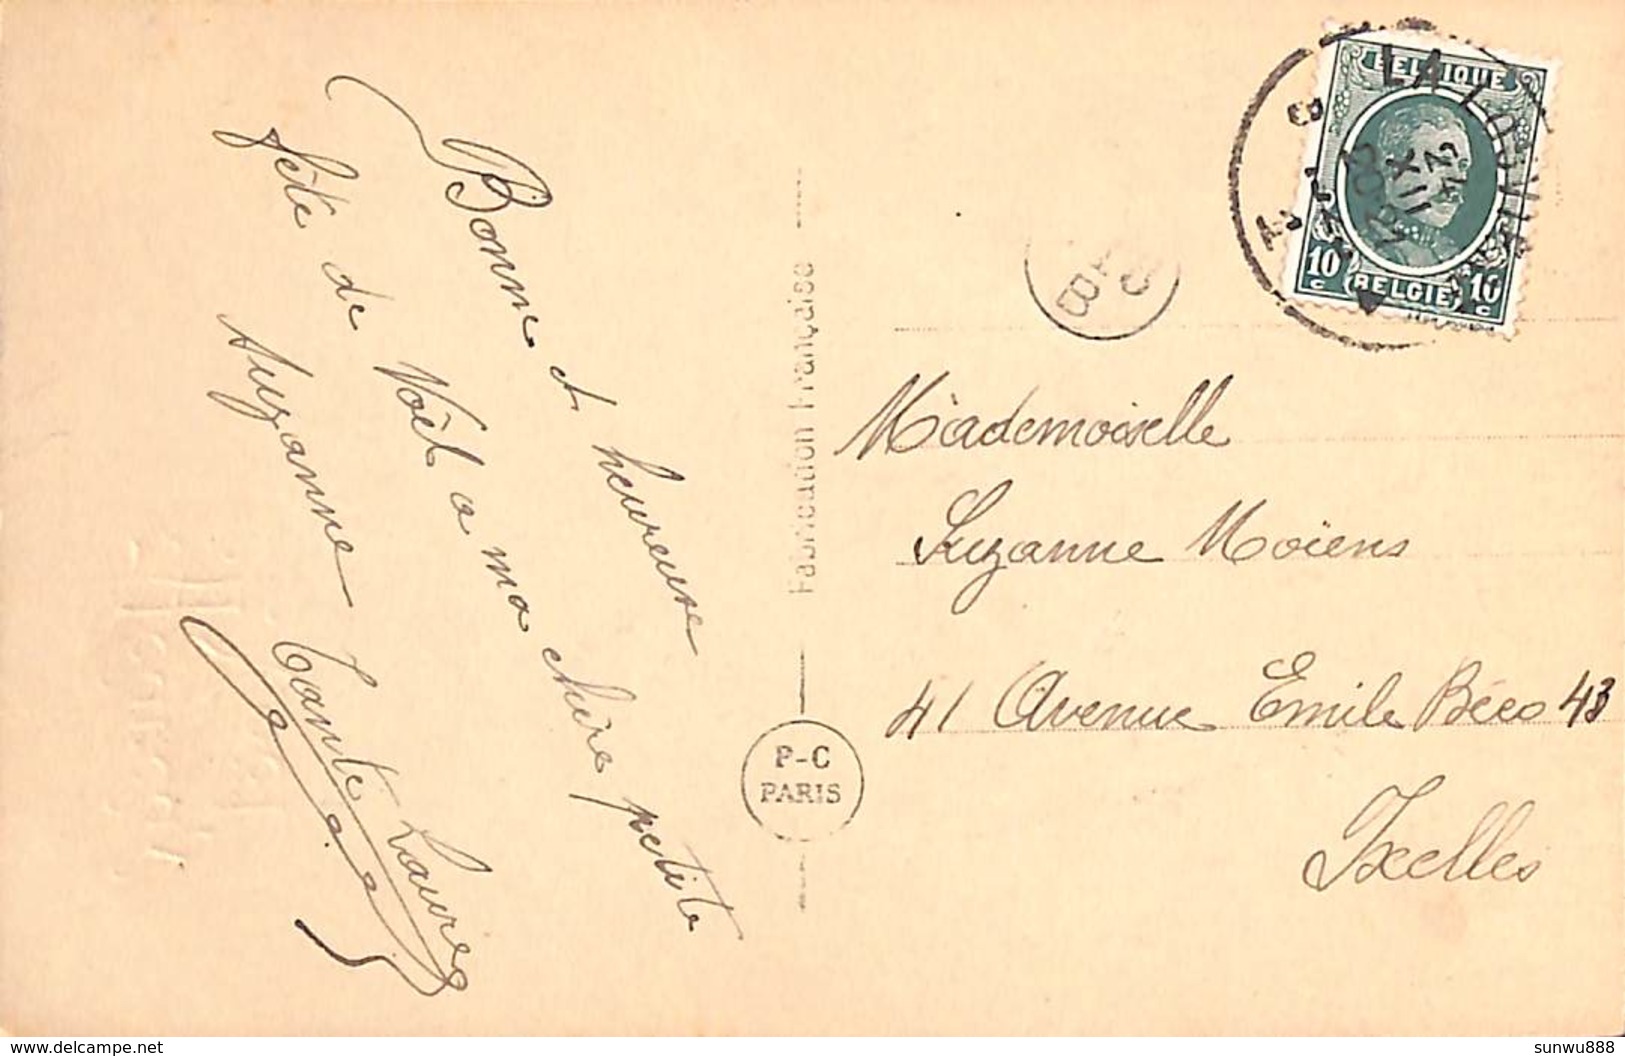 Bonne et heureuse
fête de Noël a ma chère petite
Suzanne
Tante Laure
Fabrication Française
P-C
PARIS
BELGIQUE
10 c
BELGIË
10 c
Mademoiselle
Suzanne Moïens
41 Avenue Emile Béco 43
Ixelles
sunwu888